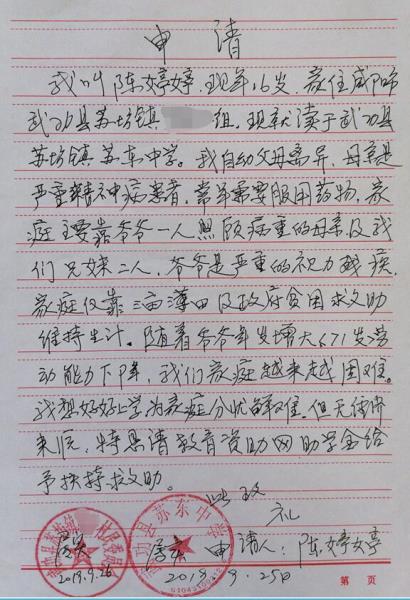 申 请
我叫陈婷婷,现年16岁,家住咸阳市
武功县苏坊镇 组,现就读于武功县
苏坊镇苏东中学。我自幼父母离异,母亲是
严重精神病患者,常年需要服用药物,家
庭主要靠爷爷一人照顾病重的母亲及我
们兄妹二人,爷爷是严重的视力残疾,
家庭仅靠三亩薄田及政府贫困救助
维持生计。随着爷爷年岁增大(71岁)劳
动能力下降,我们家庭越来越困难。
我想好好上学为家庭分忧解难。但无经济
来源,特恳请教育资助网助学金给
予扶持救助。
此致
礼
属实 属实 申请人:陈婷婷
2019.9.26 2019.9.25日
武功县苏东中学
第 页